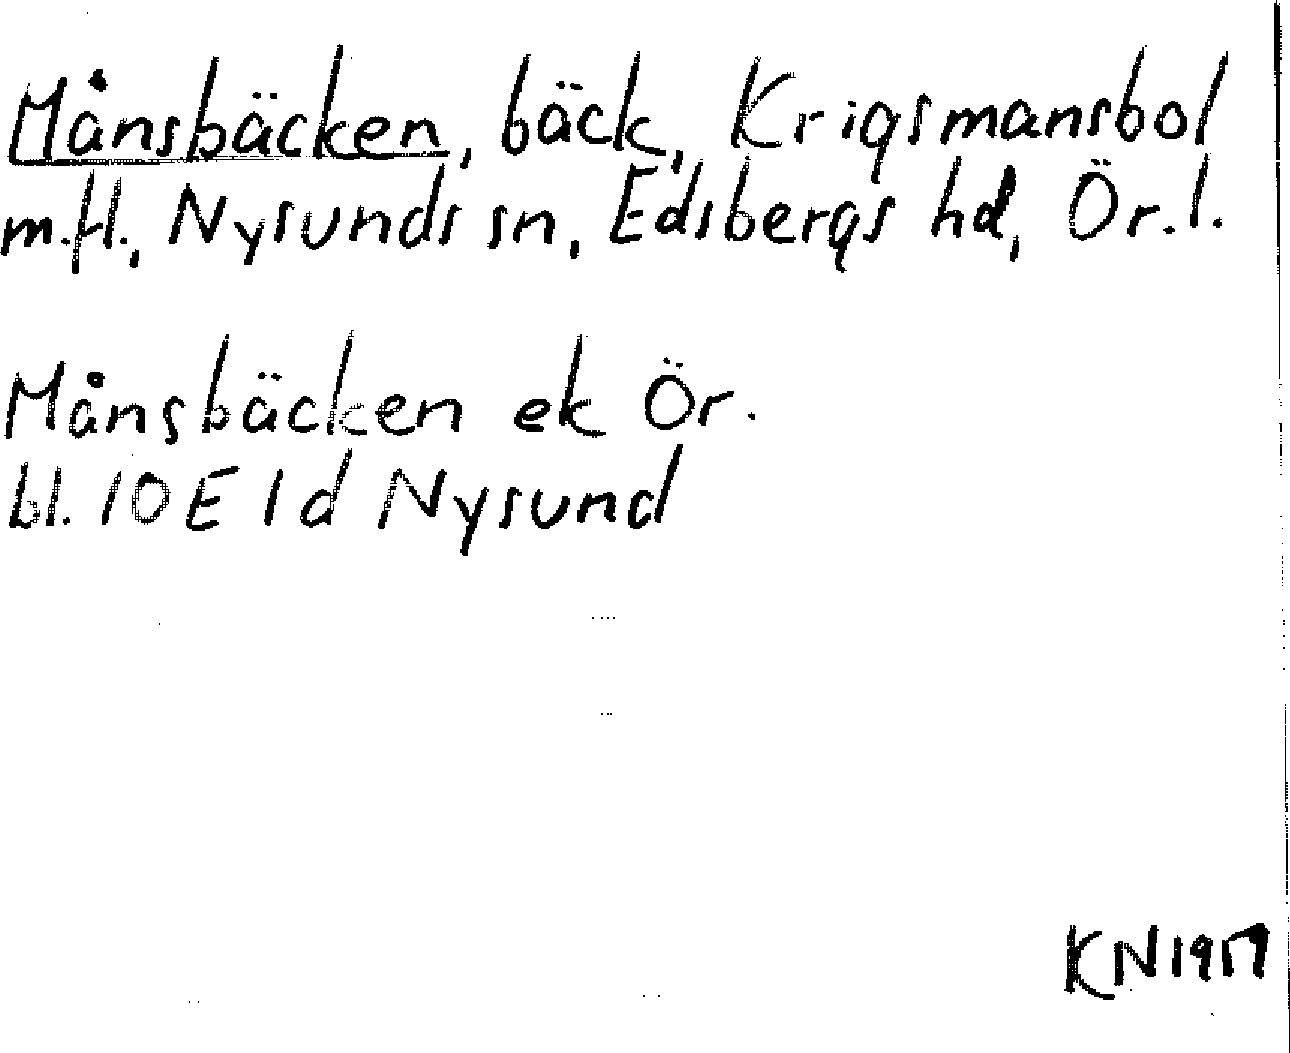 Månsbäcken, bäck, Krigsmansbol
m.fl., Nysunds sn, Edsbergs hd, Ör. l.
Månsbäcken ek Ör.
bl. 10 E 1 d Nysund
KN